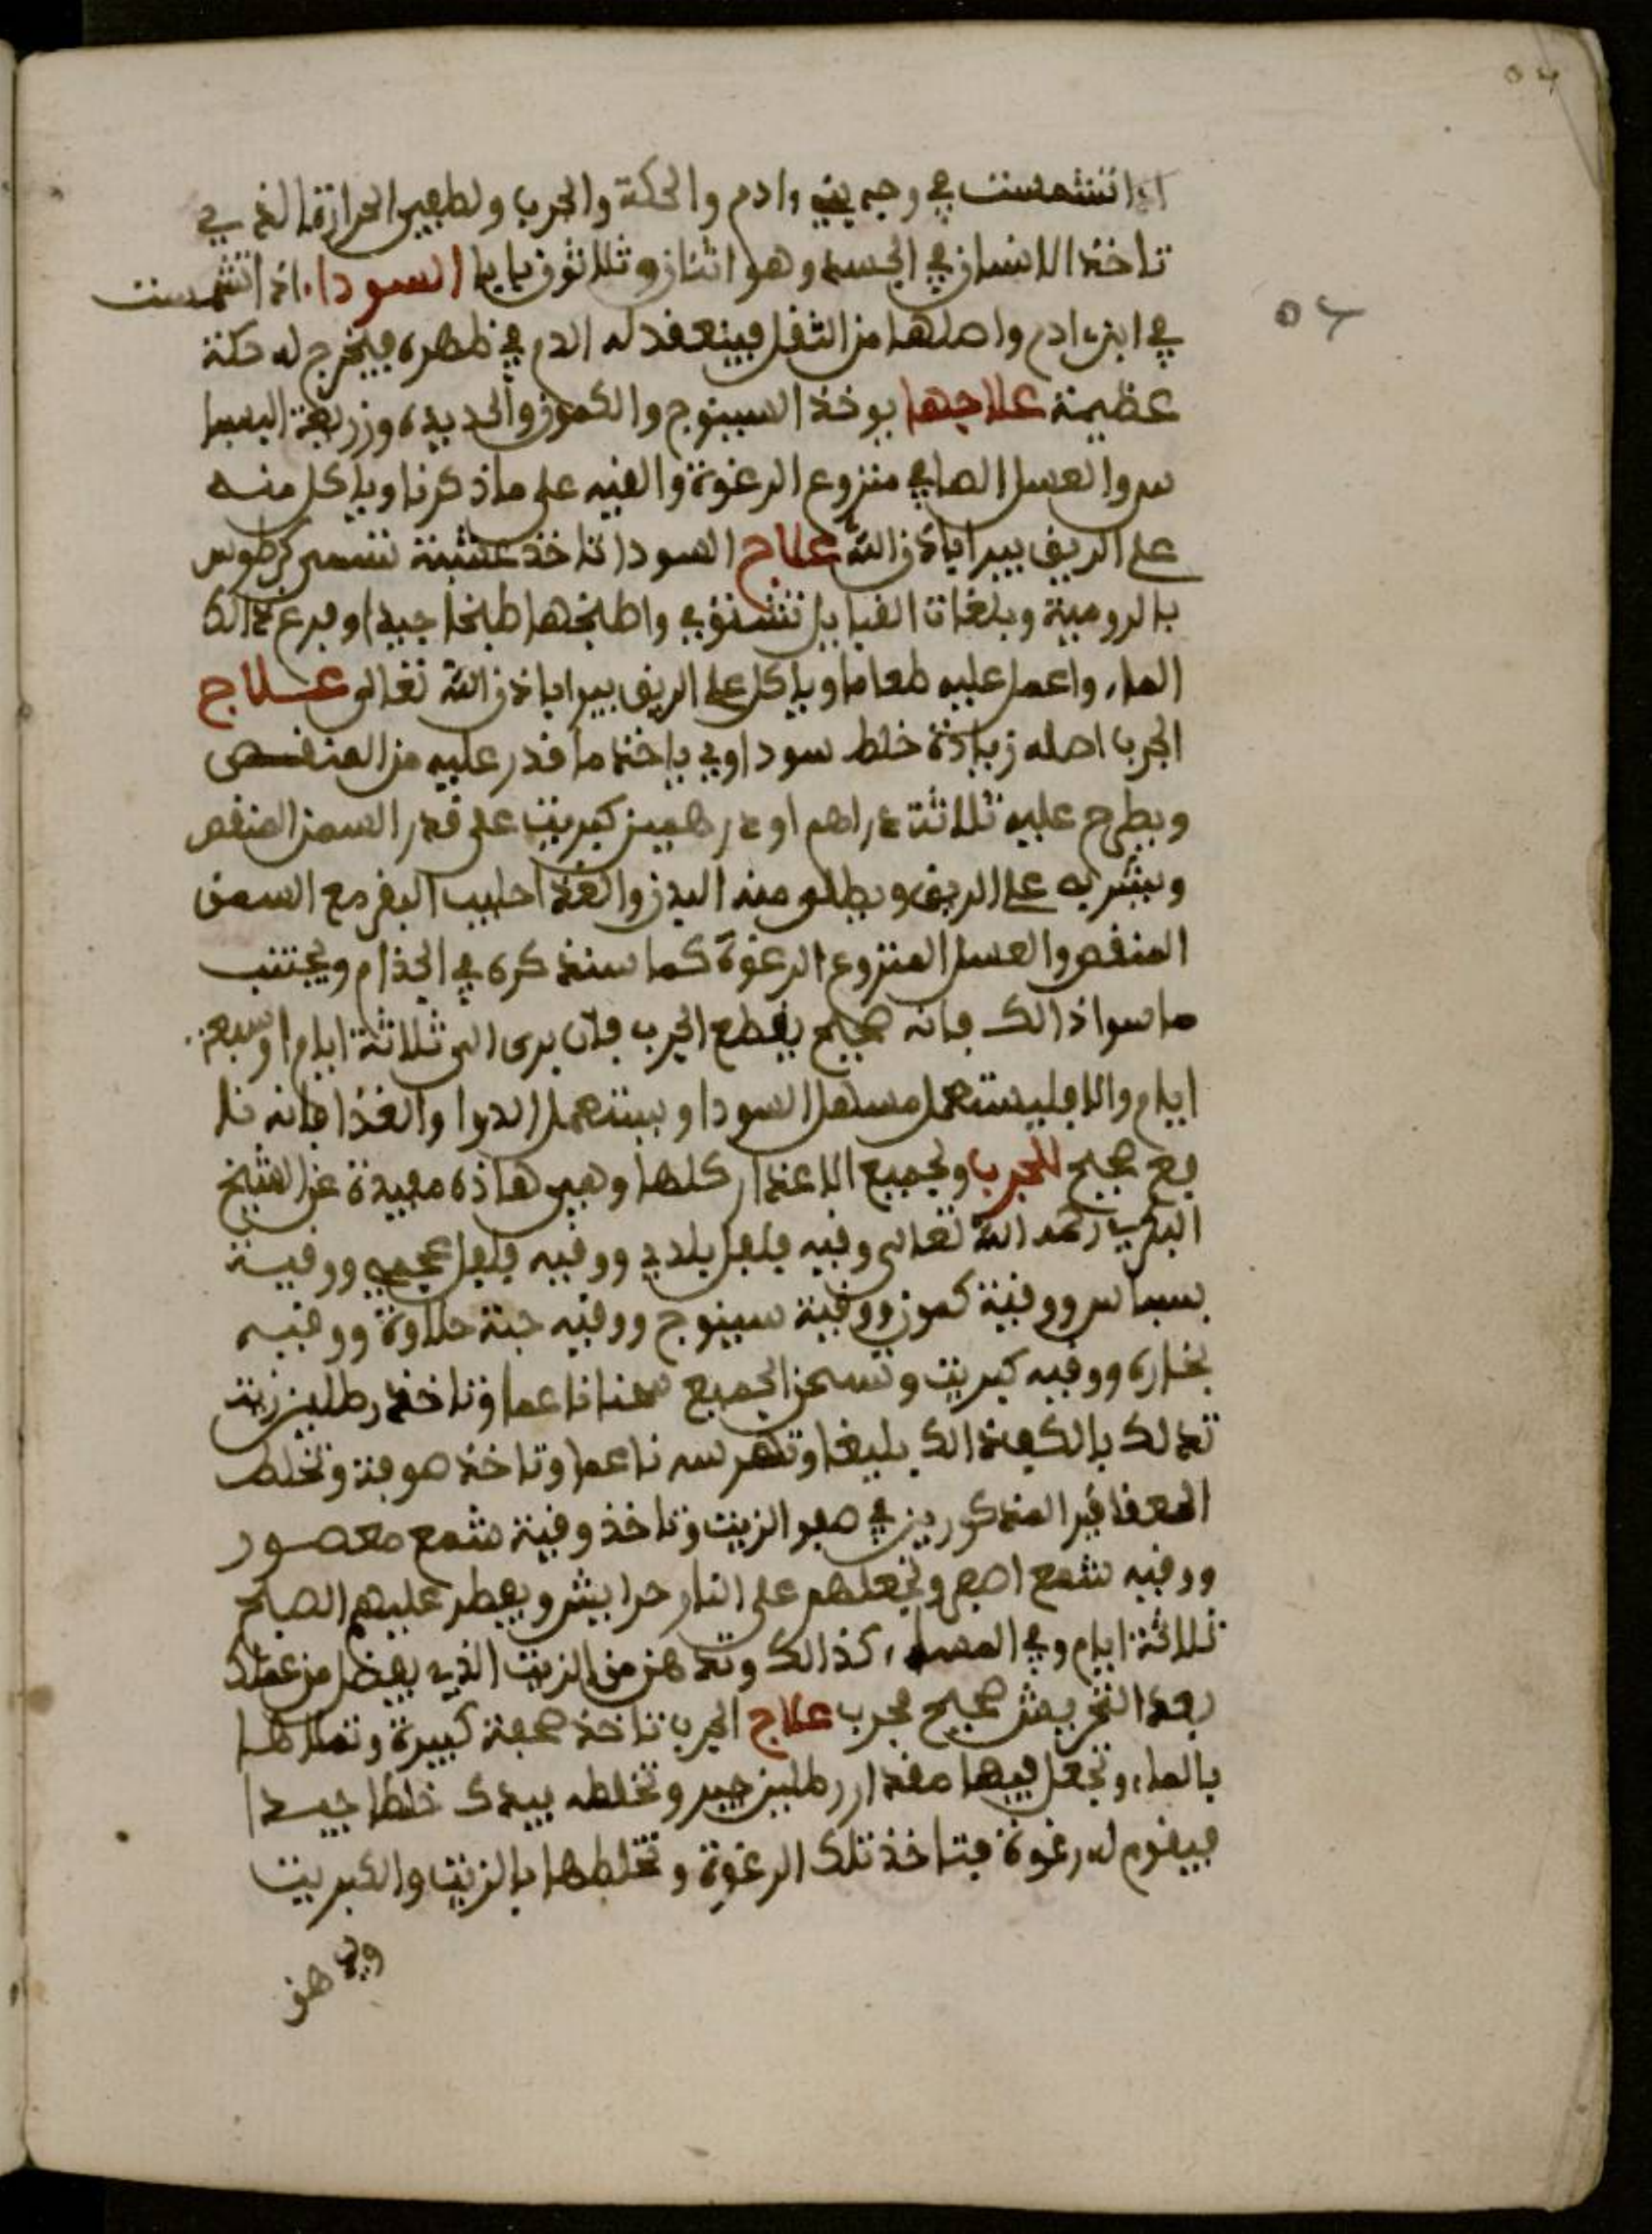 اذا انتشمست في وجه بني ءادم والحكة والجرب ولطهيس الحرارة الذي
تاخذ الانسان في الجسد وهو اثنان وثلاثون بابا السودا. اذا انتشمست
في ابن ءادم واصلها من الثفل فينعقد له الدم في ظهره فيخرج له حكة
عظيمة علاجها يوخذ السينوج والكمون والحديدة وزريعة البسبا
س والعسل الصافي منزوع الرغوة والقيه على ماذكرنا وياكل منه
على الريق يبرا باذن الله علاج السودا تاخذ عشبة تسمى
بالرومية وبلغات القبايل واطبخها طبخا جيدا وفرغ ذالك
الماء واعمل عليه طعاما وياكل على الريق يبرا باذن الله تعالى علاج
الجرب اصله زيادة خلط سوداوي ياخذ ما قدر عليه من المنفص
ويطرح عليه ثلاثة دراهم او درهمين كبريت على قدر السمن المنفص
ويشربه على الريق ويطلى منه البدن والغذا حليب البقر مع السمن
المنفص والعسل المنزوع الرغوة كما سنذكره في الجذام ويجتنب
ماسوا ذالك فانه صحيح يقطع الجرب فان برى الى ثلاثة ايام او سبعة
ايام والا فليستعمل مسهل السودا ويستعمل الدوا والغذا فانه نا
فع صحيح للجرب ولجميع الاعذار كلها وهي هاذه مفيدة عن الشيخ
البكري رحمه الله تعالى وقيه فلفل بلدي ووقيه فلفل عجمي ووقية
بسباس ووقية كمون ووقية سينوج ووقيه حبة حلاوة ووقيه
بخاره ووقيه كبريت وتسحن الجميع سحنا ناعما وتاخذ رطلين زيت
تدلك بالكف دالك بليغا وتهرسه ناعما وتاخذ صوفة وتخلط
العقاقير المذكورين في صفو الزيت وتاخذ وقية شمع معصور
ووقيه شمع اصفر وتجعلهم على النار حرايش ويفطر عليهم الصبح
ثلاثة ايام وفي المساء كذالك وتدهن من الزيت الذي يفضل من عندك
بعد التحربيش صحيح مجرب علاج الجرب تاخذ صحفة كبيرة وتملاها
بالماء وتجعل فيها مقدار رطلين جير وتخلطه بيدك خلطا جيدا
فيقوم له رغوة فتاخذ تلك الرغوة وتخلطها بالزيت والكبريت
ويدهن